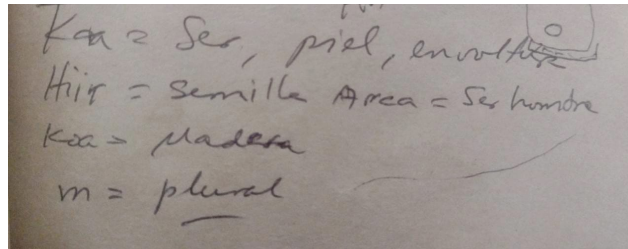 Kaa = Ser, piel, envoltura
Hiir = semilla Area = Ser hombre
Koa = Madera
m = plural